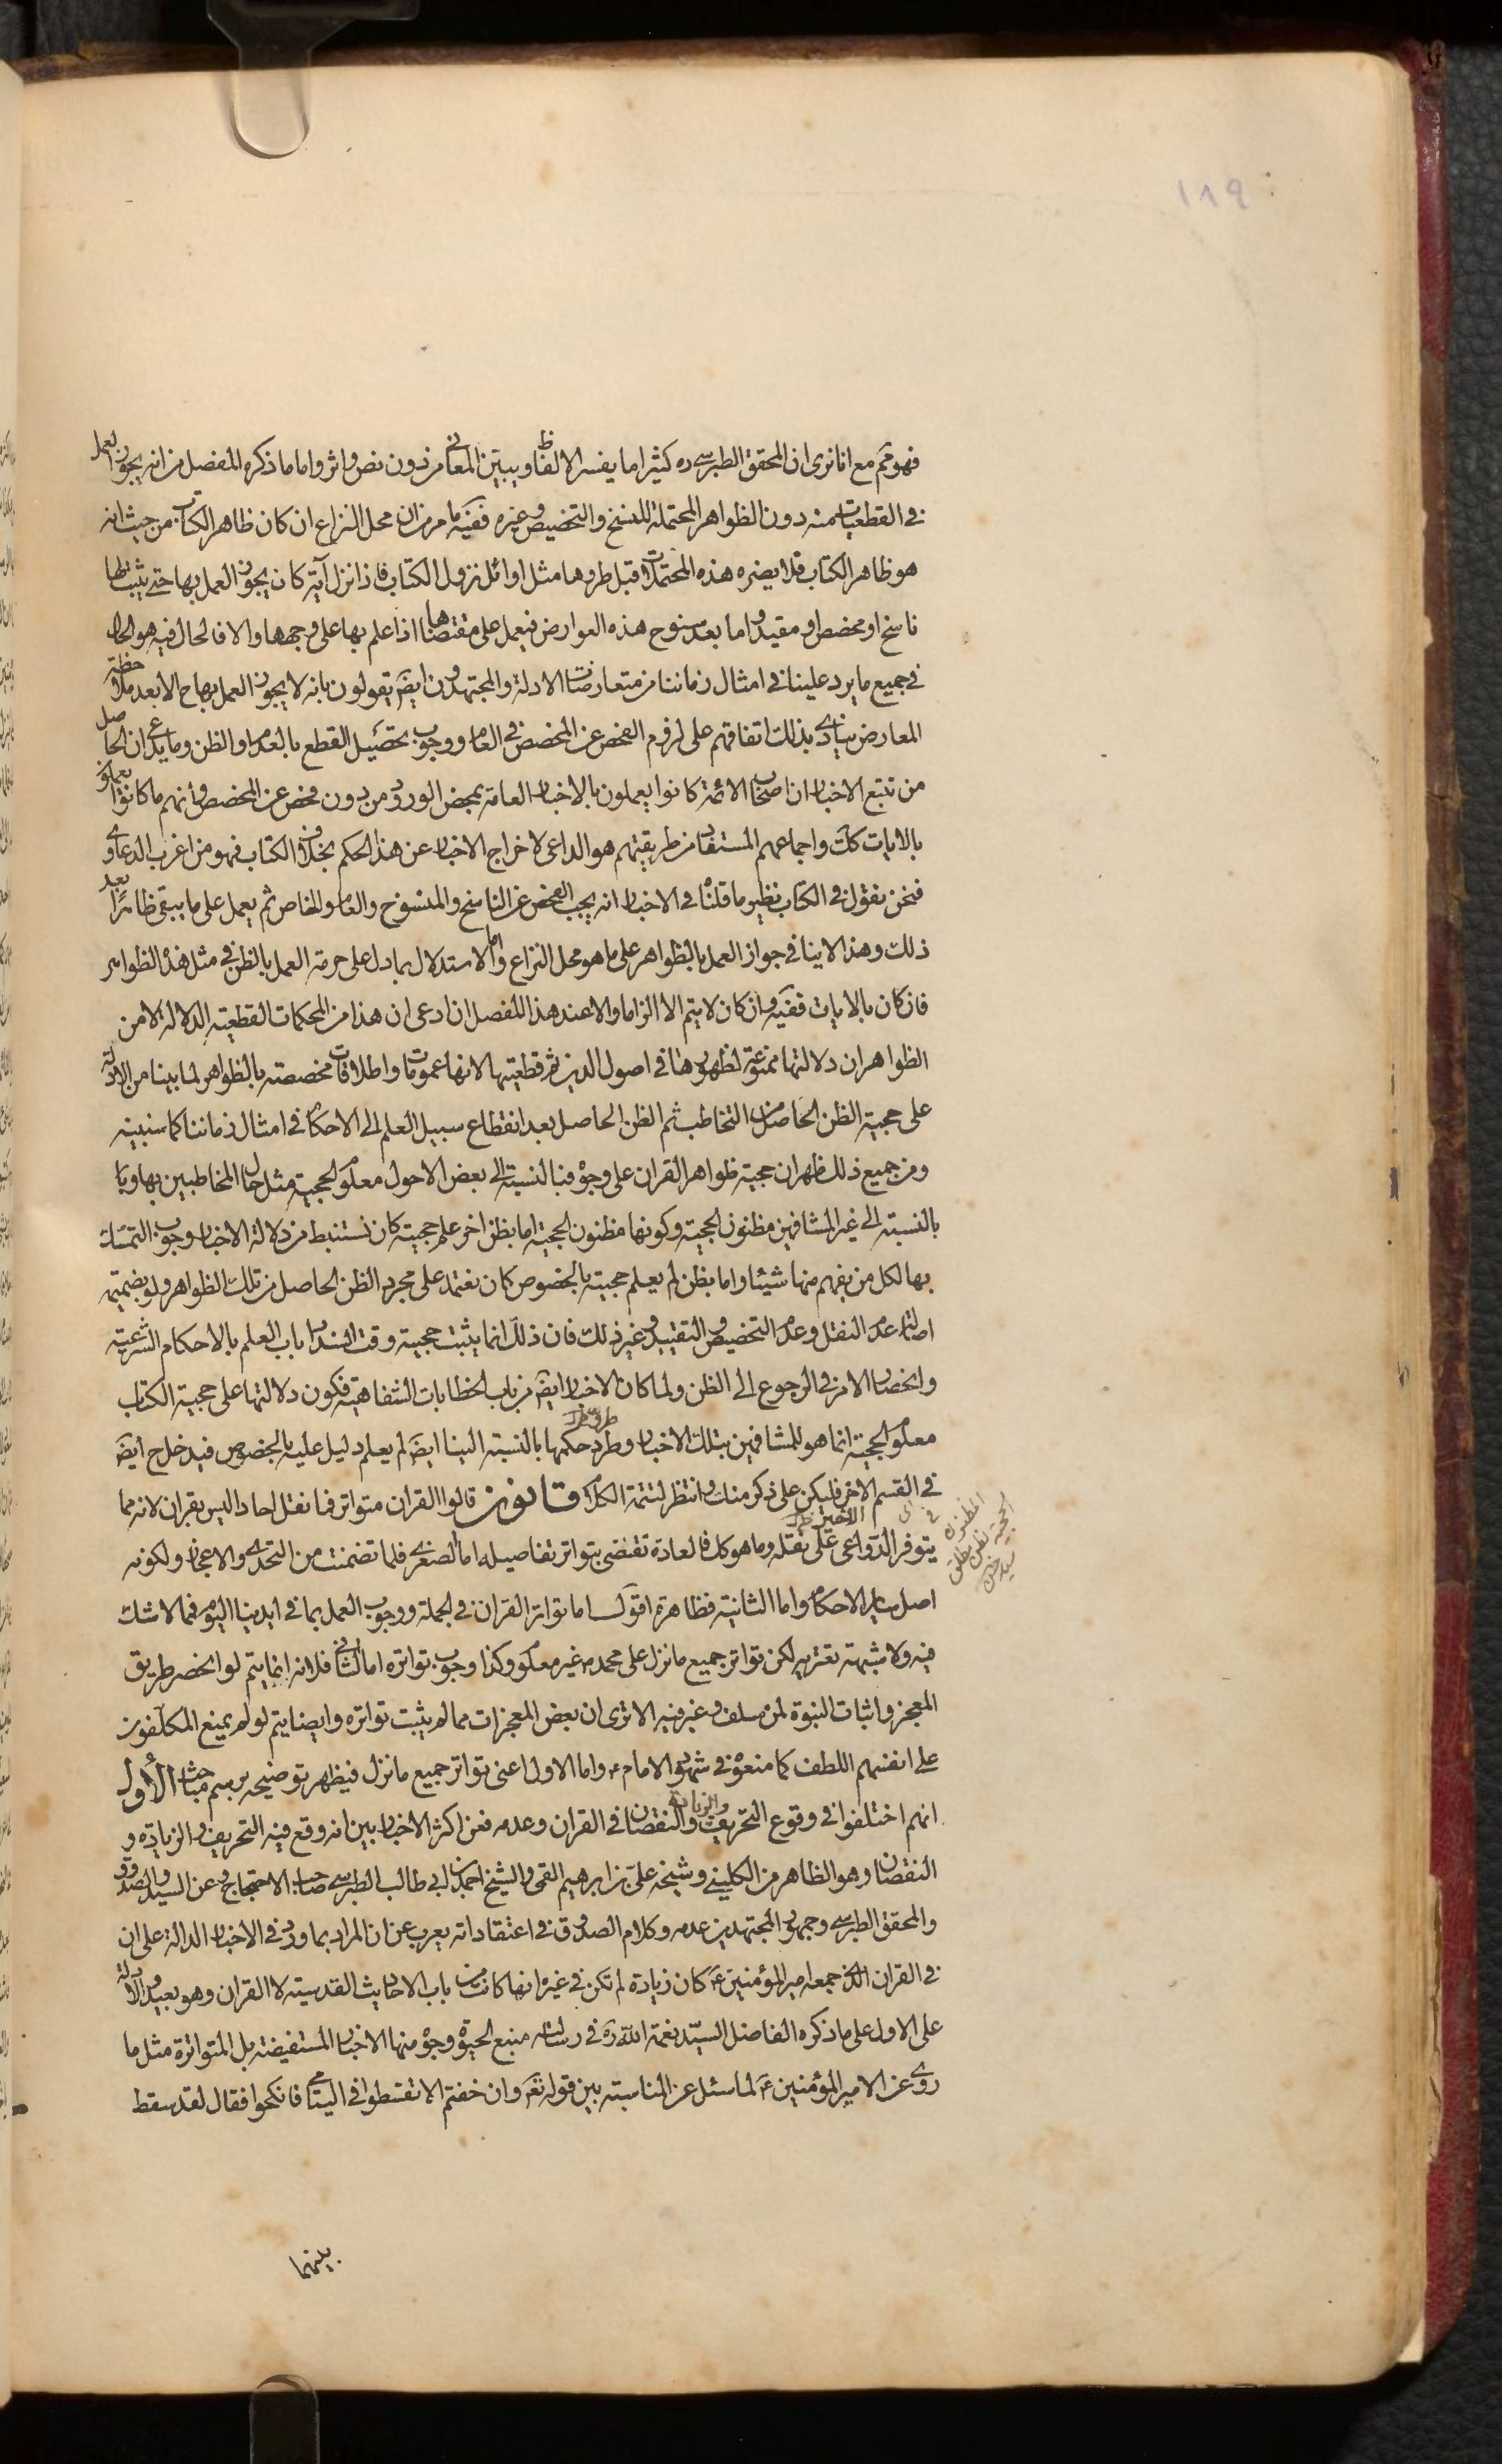 ١٨٩
فهو ثم مع انا نرى ان المحقق الطبرسي ره كثيرا ما يفسر الالفاظ ويبين المعاني من دون نص واثر واما ما ذكره المفصل من انه يجوز العمل
في القطعيات منه دون الظواهر المحتملة للنسخ والتخصيص وغيره ففيه ما مر من ان محل النزاع ان كان ظاهر الكتاب من حيث انه
هو ظاهر الكتاب فلا يضره هذه المحتملات قبل طروها مثل اوائل نزول الكتاب فاذا نزل آية كان يجوز العمل بها حتى يثبت لها
ناسخ او مخصص او مقيد واما بعد سنوح هذه العوارض فيعمل على مقتضاها اذا علم بها على وجهها والا فالحال فيه هو الحال
في جميع ما يرد علينا في امثال زماننا من متعارضات الادلة والمجتهدون ايضا يقولون بانه لا يجوز العمل بها ح الا بعد ملاحظة
المعارض ينادي بذلك اتفاقهم على لزوم الفحص عن المخصص في العام ووجوب تحصيل القطع بالعدم او الظن وما يدعى ان الحاصل
من تتبع الاخبار ان اصحاب الائمة كانوا يعملون بالاخبار العامة بمحض الورود من دون فحص عن المخصص وانهم ما كانوا يعملون
بالايات كك واجماعهم المستفاد من طريقتهم هو الداعي لاخراج الاخبار عن هذا الحكم بخلاف الكتاب فهو من اغرب الدعاوى
فنحن نقول في الكتاب نظير ما قلنا في الاخبار انه يجب الفحص عن الناسخ والمنسوخ والعام والخاص ثم يعمل على ما يبقى ظاهرا بعد
ذلك وهذا لا ينافي جواز العمل بالظواهر على ما هو محل النزاع واما الاستدلال بما دل على حرمة العمل بالظن في مثل هذه الظواهر
فان كان بالايات ففيه وان كان لا يتم الا الزاما والا عند هذا المفصل ان ادعى ان هذا من المحكمات القطعية الدلالة لا من
الظواهر ان دلالتها ممنوعة لظهورها في اصول الدين ثم قطعيتها لانها عمومات واطلاقات مخصصة بالظواهر لما بينا من الادلة
على حجية الظن الحاصل من التخاطب ثم الظن الحاصل بعد انقطاع سبيل العلم الى الاحكام في امثال زماننا كما سنبينه
ومن جميع ذلك ظهر ان حجية ظواهر القران على وجوه فبالنسبة الى بعض الاحوال معلوم الحجية مثل حال المخاطبين بها و با
بالنسبة الى غير المشافهين مظنون الحجية وكونها مظنون الحجية اما بظن اخر علم حجيته كان نستنبط من دلالة الاخبار وجوب التمسك
بها لكل من يفهم منها شيئا واما بظن لم يعلم حجيته بالخصوص كان نعتمد على مجرد الظن الحاصل من تلك الظواهر ولو بضميمة
اصالة عدم النقل وعدم التخصيص والتقييد وغير ذلك فان ذلك انما يثبت حجيته وقت انسداد باب العلم بالاحكام الشرعية
وانحصار الامر في الرجوع الى الظن ولما كان الاخبار ايضا من باب الخطابات الشفاهية فكون دلالتها على حجية الكتاب
معلوم الحجية انما هو للمشافهين بتلك الاخبار وطرد حكمها بالنسبة الينا ايضا لم يعلم دليل عليه بالخصوص فيدخل ح ايضا
في القسم الاخر فليكن على ذكر منك وانتظر لتتمة الكلام قانون قالوا القران متواتر فما نقل احادا ليس بقران لانه مما
الاخير
يتوفر الدواعي على نقله وما هو كك فالعادة تقتضي بتواتر تفاصيله اما الصغرى فلما تضمنت من التحدي والاعجاز ولكونه
اصل ساير الاحكام واما الثانية فظاهرة اقول اما تواتر القران في الجملة ووجوب العمل بما في ايدينا اليوم فمما لا شك
فيه ولا شبهة تعتريه لكن تواتر جميع ما نزل على محمد ص غير معلوم وكذا وجوب تواتره اما الثاني فلانه انما يتم لو انحصر طريق
المعجز واثبات النبوة لمن سلف وغبر فيه الا ترى ان بعض المعجزات مما لم يثبت تواتره وايضا يتم لو لم يمنع المكلفون
على انفسهم اللطف كما منعوه في شهود الامام ع واما الاول اعني تواتر جميع ما نزل فيظهر توضيحه برسم مباحث الأول
انهم اختلفوا في وقوع التحريف والزيادة والنقصان في القران وعدمه فعن اكثر الاخباريين انه وقع فيه التحريف والزيادة و
النقصان وهو الظاهر من الكليني وشيخه علي بن ابراهيم القمي والشيخ احمد بن ابي طالب الطبرسي صاحب الاحتجاج وعن السيد والصدوق
والمحقق الطبرسي وجمهور المجتهدين عدمه وكلام الصدوق في اعتقاداته يعرب عن ان المراد بما ورد في الاخبار الدالة على ان
في القران الذي جمعه امير المؤمنين ع كان زيادة لم تكن في غيره انها كانت من باب الاحاديث القدسية لا القران وهو بعيد والادلة
على الاول على ما ذكره الفاضل السيد نعمة الله ره في رسالته منبع الحيوة وجوه منها الاخبار المستفيضة بل المتواترة مثل ما
روى عن الامير المؤمنين ع لما سئل عن المناسبة بين قوله تعم وان خفتم الا تقسطوا في اليتامى فانكحوا فقال لقد سقط
بينهما